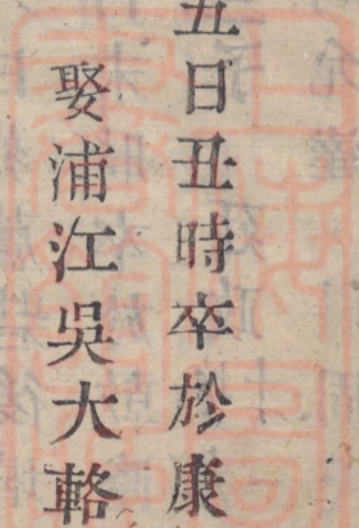 五日丑時卒於康
娶浦江吳大輅